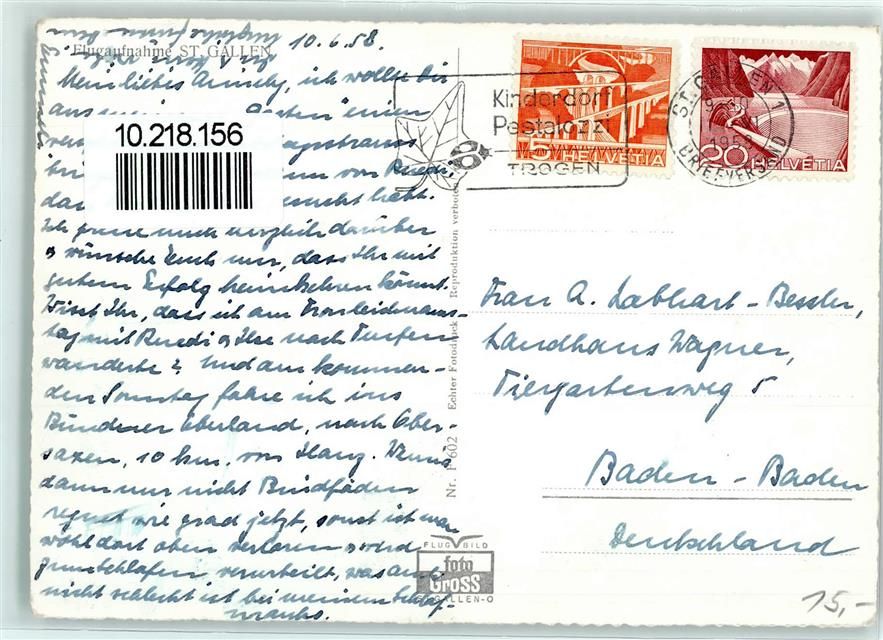 Flugaufnahme ST. GALLEN
10.6.58.
Mein liebes , ich wollte Dir
aus einen
10.218.156
von Ruedi,
gesucht habt.
Ich freue mich darüber
& wünsche Euch nur, dass Ihr mit
gutem Erfolg heimkehren könnt.
Wisst Ihr, dass ich am Fronleichnams-
tag mit Ruedi & Ilse nach Teufen
wanderte? Und am kommen-
den Sonntag fahre ich ins
Bündner Oberland, nach Ober-
saxen, 10 km. von Ilanz. Wenns
dann nur nicht Bindfäden
regnet wie grad jetzt, sonst ist man
wohl dort oben verloren & wird
zum Schlafen verurteilt, was auch
nicht schlecht ist bei meinem Schlaf-
manko.
Nr. F 602 Echter Fotodruck Reproduktion verboten
Kinderdorf
Pestalozzi
TROGEN
5 HELVETIA
20 HELVETIA
ST. GALLEN 1
BRIEFVERSAND
Frau A. Labhart-Bessler,
Landhaus Wagner,
Tiergartenweg 5
Baden-Baden
Deutschland
FLUGBILD
foto
GROSS
ST. GALLEN-O
15,-